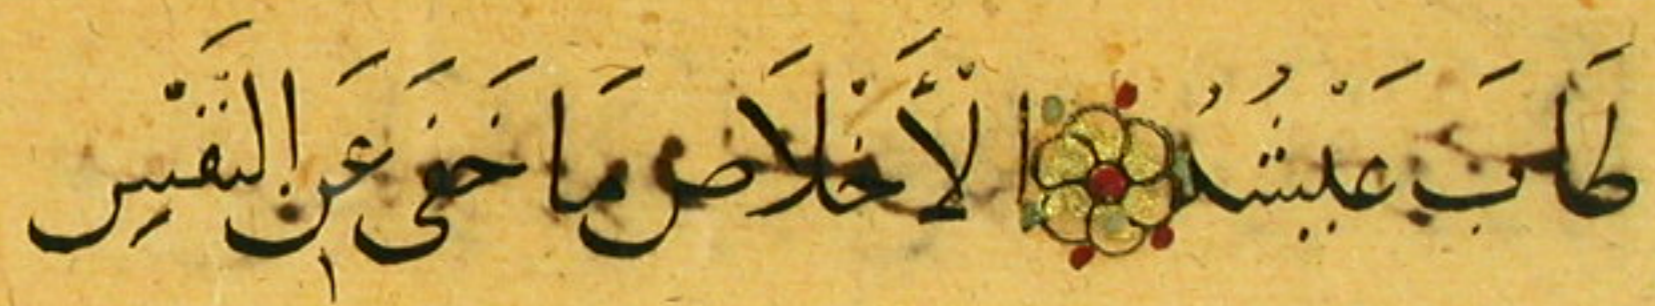 طَابَ عَيْشُهُ الْإَخْلَاص مَا خَفَى عَنِ النَّفْسِ